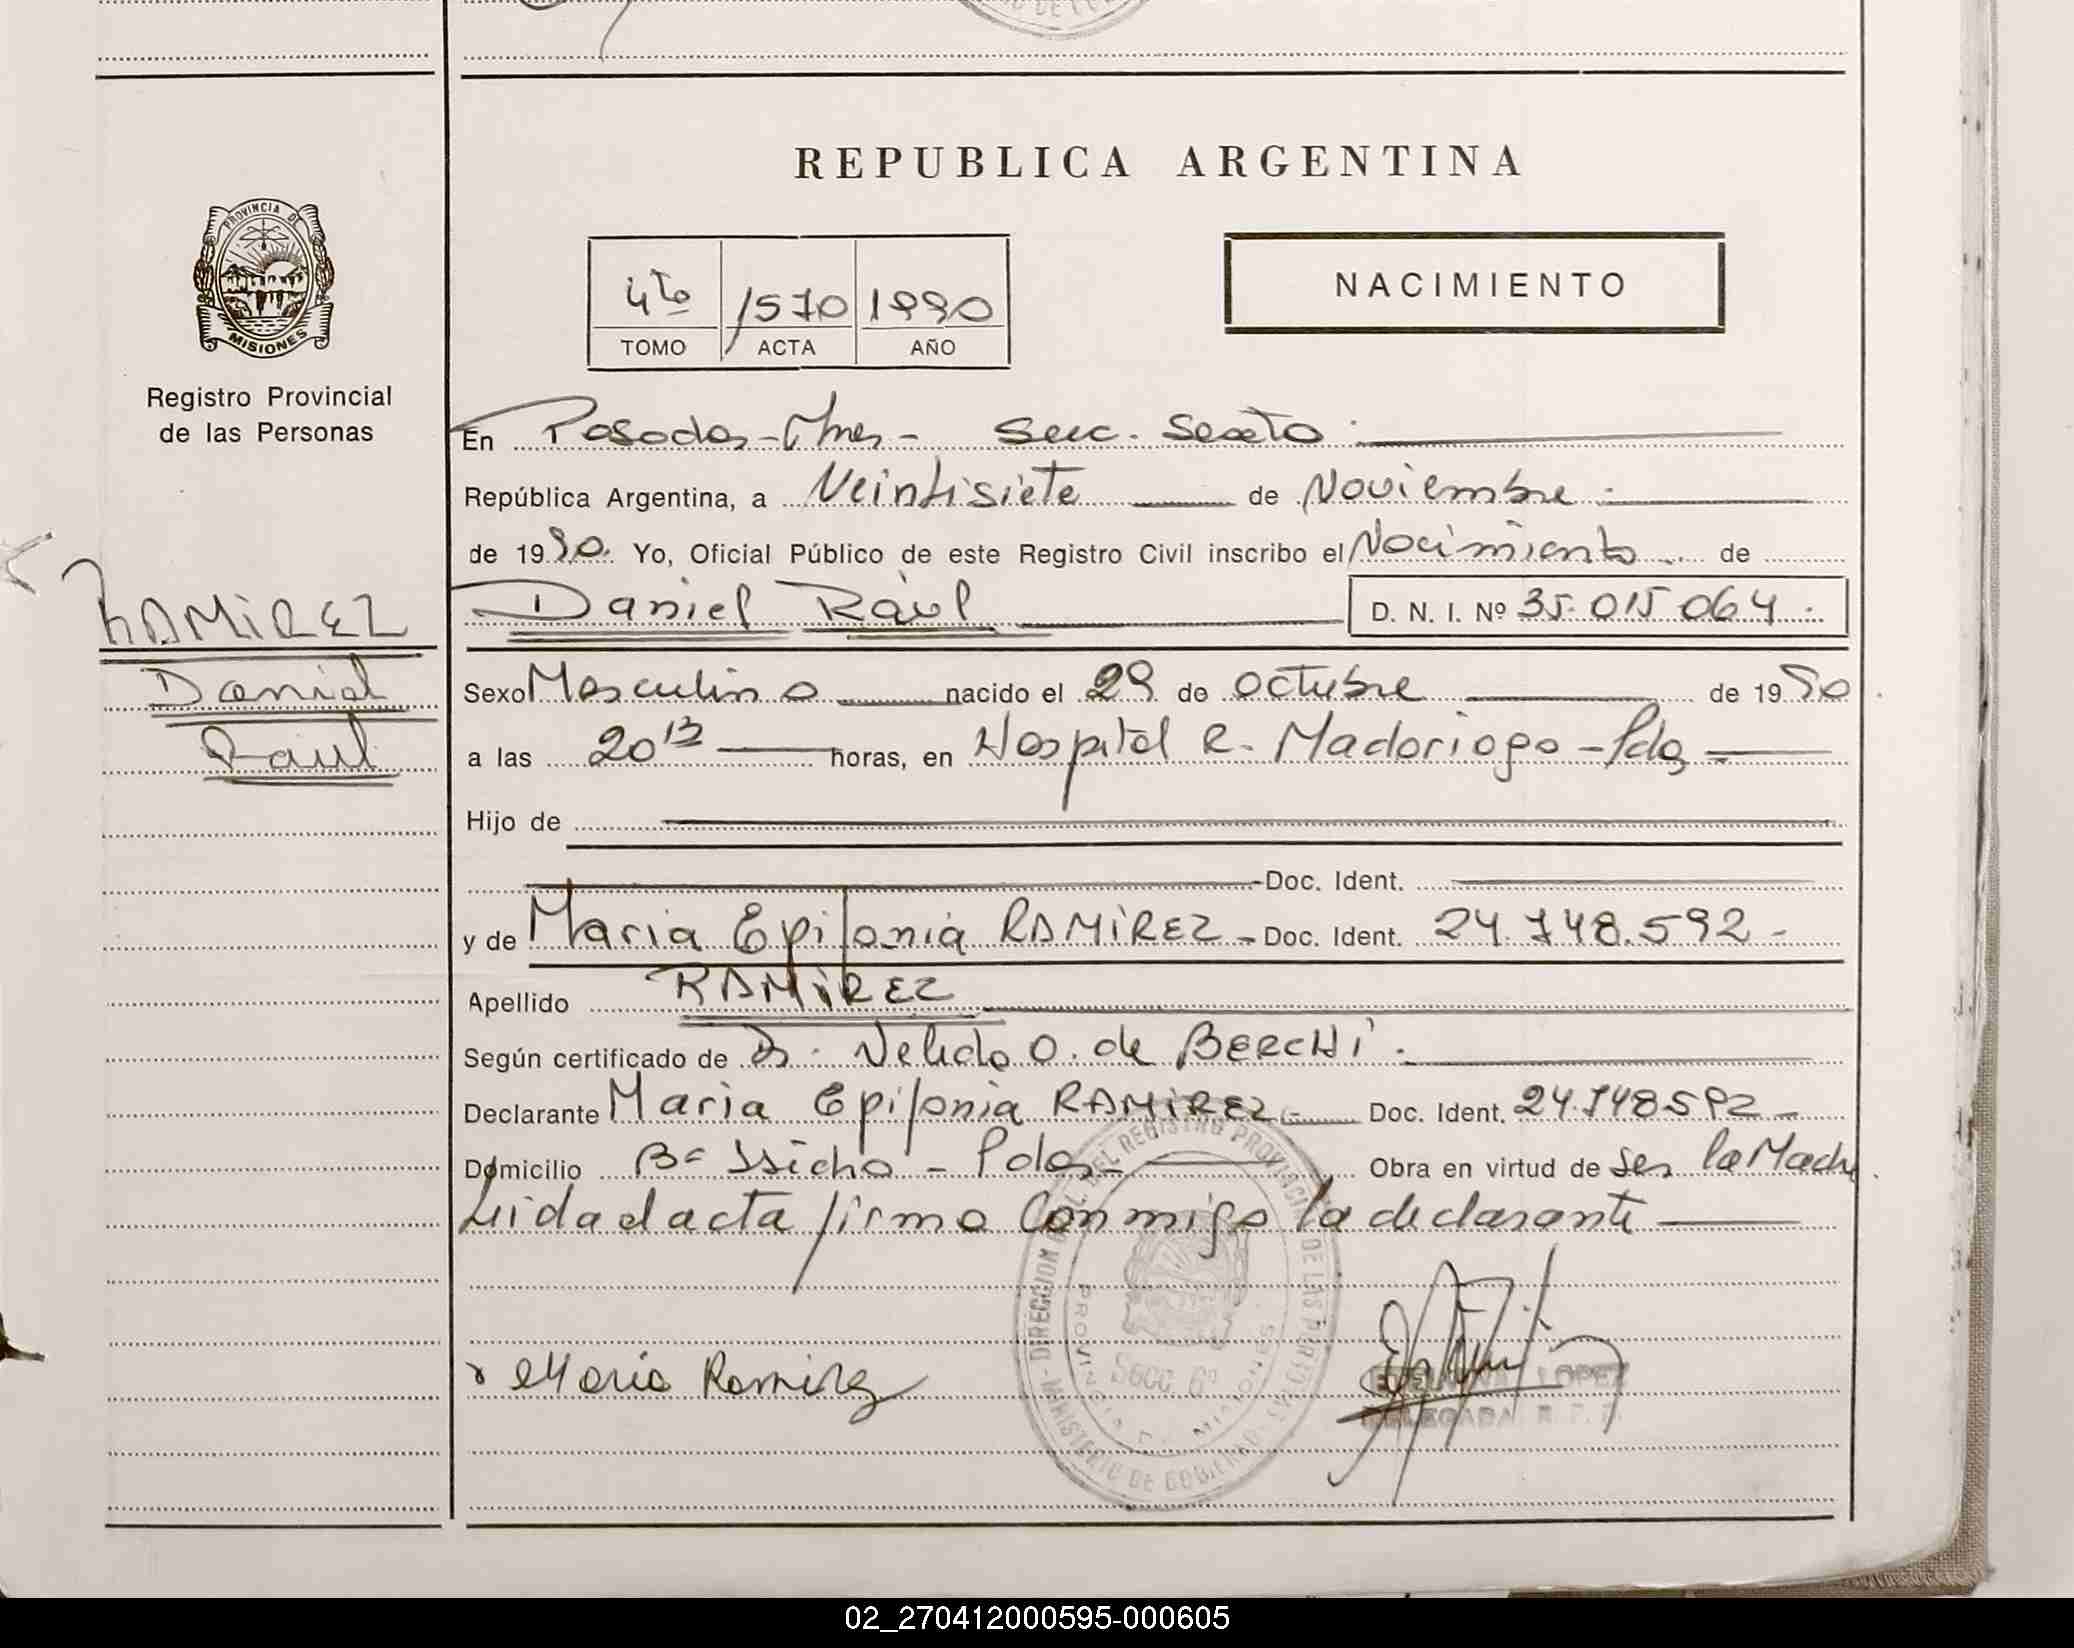 REPUBLICA ARGENTINA
PROVINCIA DE
MISIONES
Registro Provincial
de las Personas
4to 1570 1990
TOMO ACTA AÑO
NACIMIENTO
En Posadas - Mnes - Secc. Sexta
República Argentina, a Veintisiete de Noviembre
de 1990. Yo, Oficial Público de este Registro Civil inscribo el Nacimiento de
RAMIREZ
Daniel
Raul
Daniel Raúl D. N. I. Nº 35.015.064
Sexo Masculino nacido el 29 de octubre de 1990
a las 20 13 horas, en Hospital R. Madariaga - Pdas
Hijo de
Doc. Ident.
y de Maria Epifania RAMIREZ - Doc. Ident. 24.748.592 -
Apellido RAMIREZ
Según certificado de Nelida O. de BERCHI
Declarante Maria Epifania RAMIREZ - Doc. Ident. 24.748592 -
Domicilio Bº - Pdas - Obra en virtud de ser la Madre
Leida el acta firma conmigo la declarante
x Maria Ramirez
MINISTERIO DE GOBIERNO - DIRECCION GRAL DEL REGISTRO PROVINCIAL DE LAS PERSONAS
PROVINCIA MISIONES
Secc. 6º
LOPEZ
DELEGADA R. P. P.
02_270412000595-000605